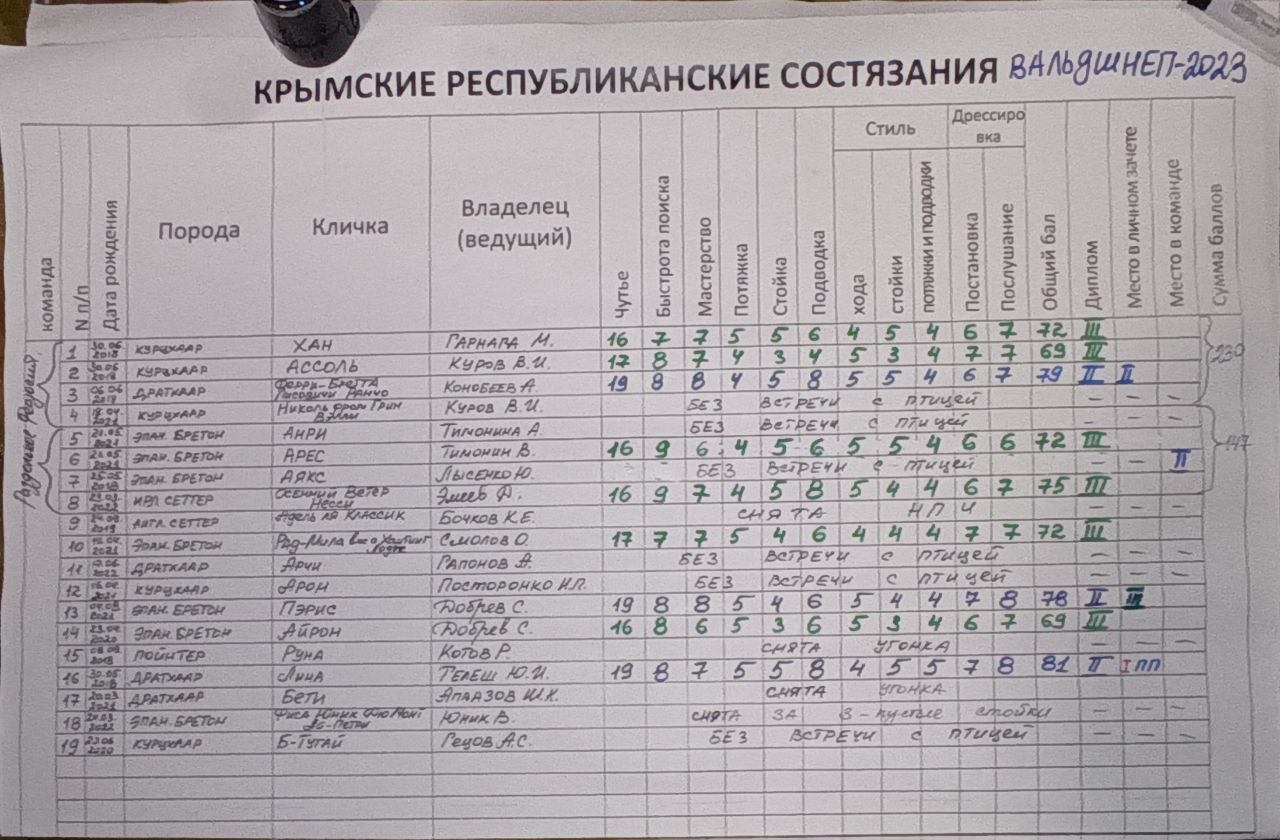 КРЫМСКИЕ РЕСПУБЛИКАНСКИЕ СОСТЯЗАНИЯ ВАЛЬДШНЕП-2023
команда N п/п Дата рождения Порода Кличка Владелец (ведущий) Чутье Быстрота поиска Мастерство Потяжка Стойка Подводка Стиль хода стойки потяжки и подводки Дрессировка Постановка Послушание Общий бал Диплом Место в личном зачете Место в команде Сумма баллов
1 30.06 2018 КУРЦХААР ХАН ГАРНАГА М. 16 7 7 5 5 6 4 5 4 6 7 72 III
2 30.06 2018 КУРЦХААР АССОЛЬ КУРОВ В.И. 17 8 7 4 3 4 5 3 4 7 7 69 III
3 ДРАТХААР КОНОБЕЕВ А. 19 8 8 4 5 8 5 5 4 6 7 79 II II
230
4 2021 КУРЦХААР КУРОВ В.И. БЕЗ ВСТРЕЧИ С ПТИЦЕЙ — — —
5 21.05 2021 ЭПАН. БРЕТОН АНРИ ТИМОНИНА А. БЕЗ ВСТРЕЧИ С ПТИЦЕЙ — —
6 21.05 2021 ЭПАН. БРЕТОН АРЕС ТИМОНИН В. 16 9 6 4 5 6 5 5 4 6 6 72 III
147
7 ЭПАН. БРЕТОН АЯКС ЛЫСЕНКО Ю. БЕЗ ВСТРЕЧИ С ПТИЦЕЙ — — II
8 ИРЛ. СЕТТЕР ОСЕННИЙ ВЕТЕР НЕССИ 16 9 7 4 5 8 5 4 4 6 7 75 III
9 2019 АНГЛ. СЕТТЕР КЛАССИК БОЧКОВ К.Е. СНЯТА — — —
10 2021 ЭПАН. БРЕТОН СМОЛОВ О. 17 7 7 5 4 6 4 4 4 7 7 72 III
11 2022 ДРАТХААР АРЧИ ГАПОНОВ А. БЕЗ ВСТРЕЧИ С ПТИЦЕЙ — —
12 2021 КУРЦХААР АРОН ПОСТОРОНКО Н.П. БЕЗ ВСТРЕЧИ С ПТИЦЕЙ — — —
13 2021 ЭПАН. БРЕТОН ПЭРИС ДОБРЕВ С. 19 8 8 5 4 6 5 4 4 7 8 78 II III
14 2020 ЭПАН. БРЕТОН АЙРОН ДОБРЕВ С. 16 8 6 5 3 6 5 3 4 6 7 69 III
15 2018 ПОЙНТЕР РУНА КОТОВ Р. СНЯТА УГОНКА — — —
16 30.05 2018 ДРАТХААР ЛИНА ТЕЛЕШ Ю.И. 19 8 7 5 5 8 4 5 5 7 8 81 II I ПП
17 20.03 2021 ДРАТХААР БЕТИ АПААЗОВ Ш.К. СНЯТА УГОНКА
18 2022 ЭПАН. БРЕТОН ЮНИК В. СНЯТА ЗА 3 - ПУСТЫЕ СТОЙКИ — — —
19 2020 КУРЦХААР Б-ТУГАЙ ГЕЦОВ А.С. БЕЗ ВСТРЕЧИ С ПТИЦЕЙ — — —